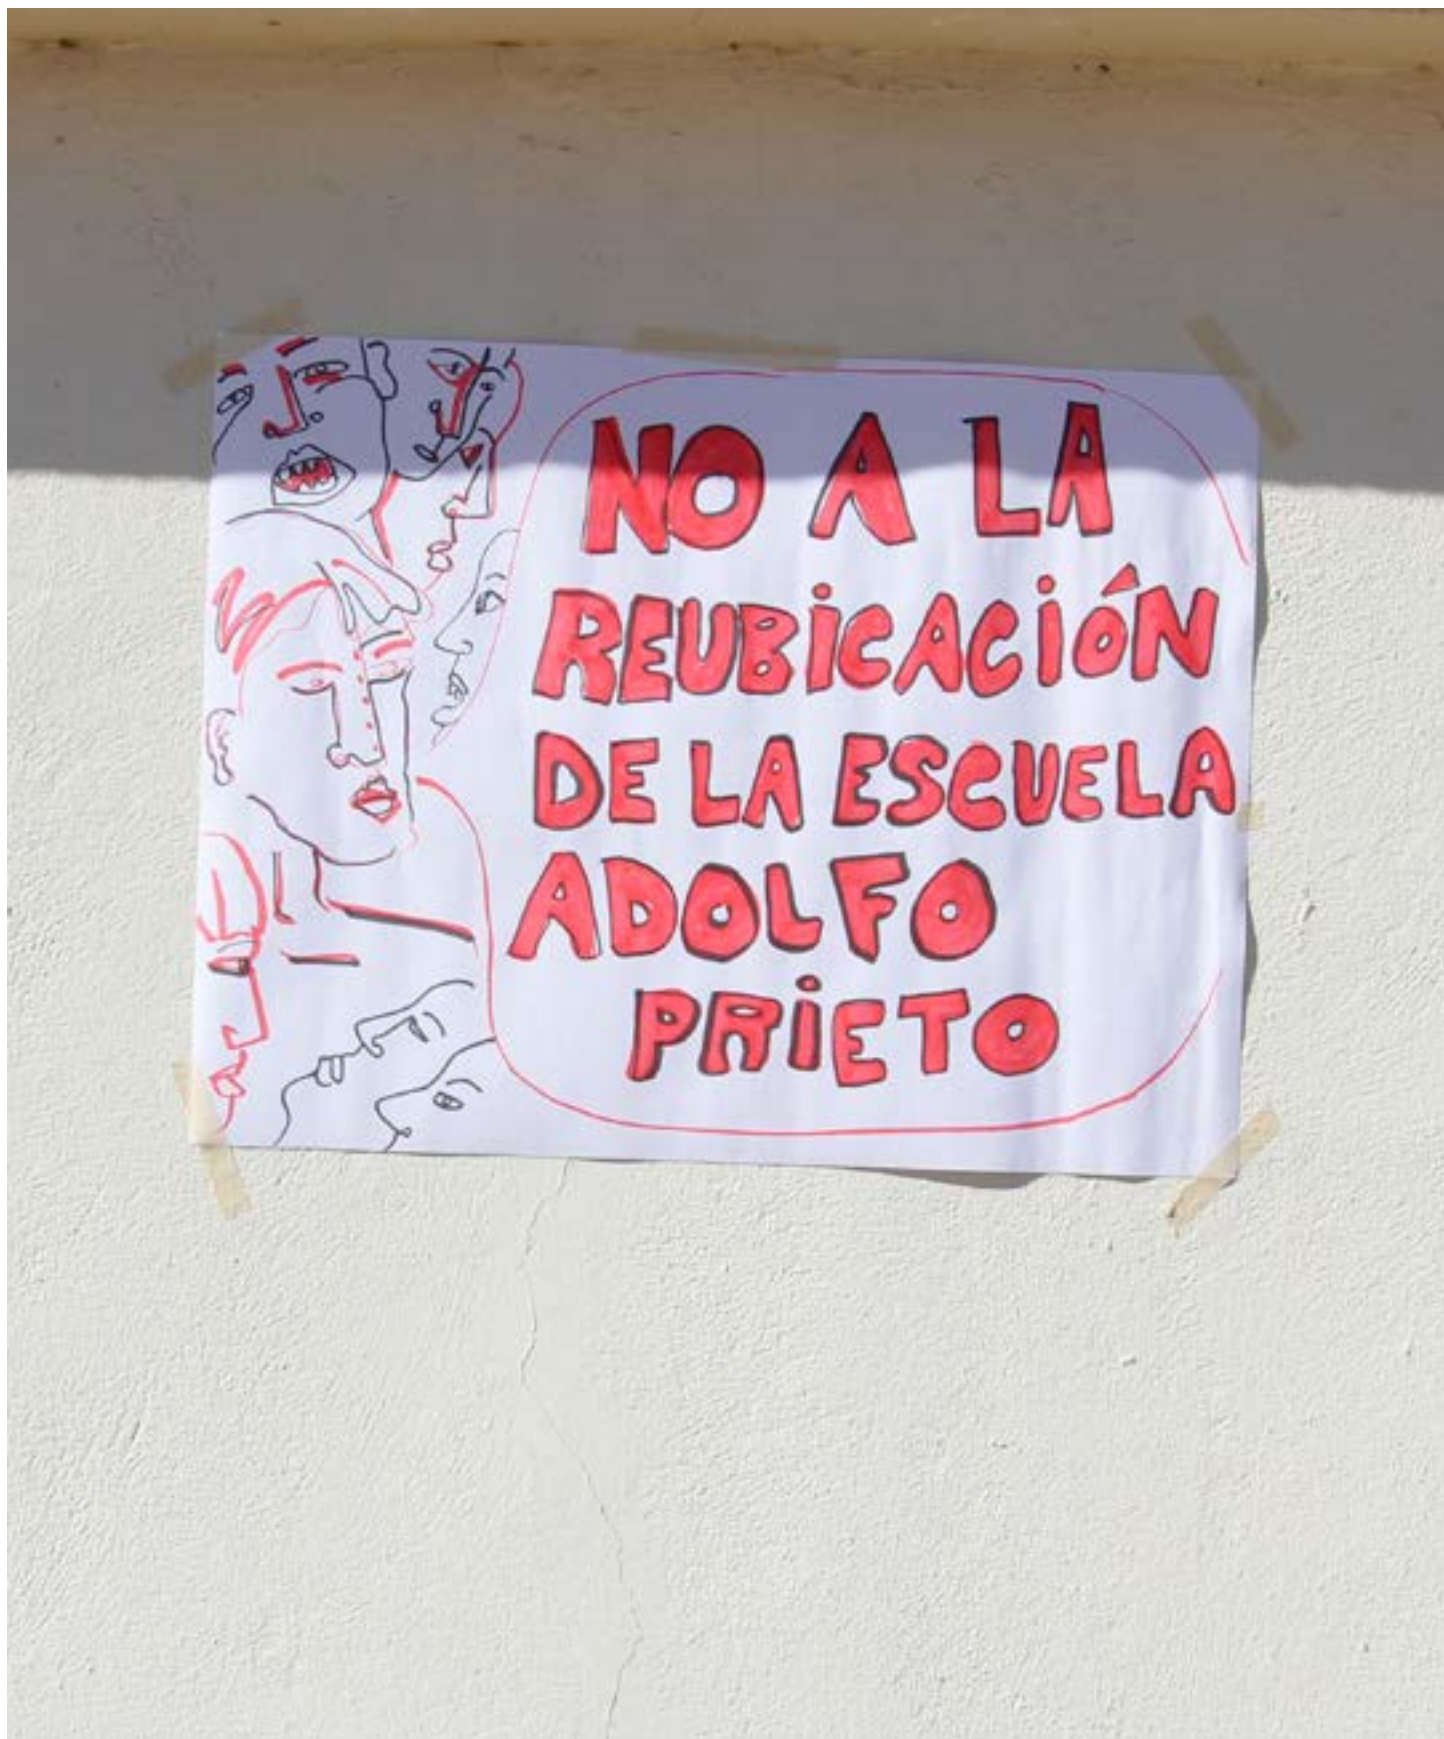 NO A LA
REUBiCACiÓN
DE LA ESCUELA
ADOLFO
PRiETO